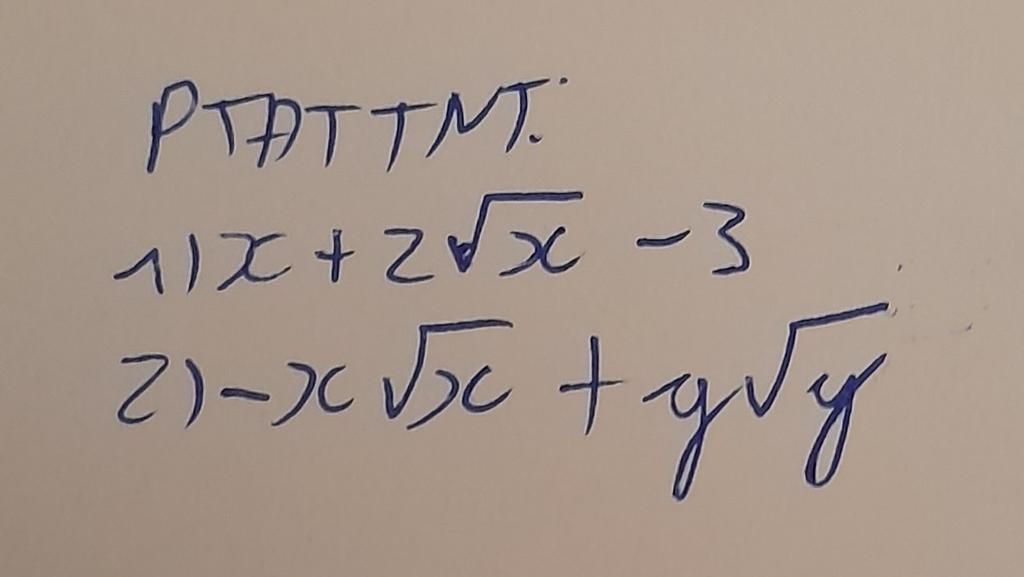 PTĐTTNT:
1) x + 2√x - 3
2) - x√x + y√y